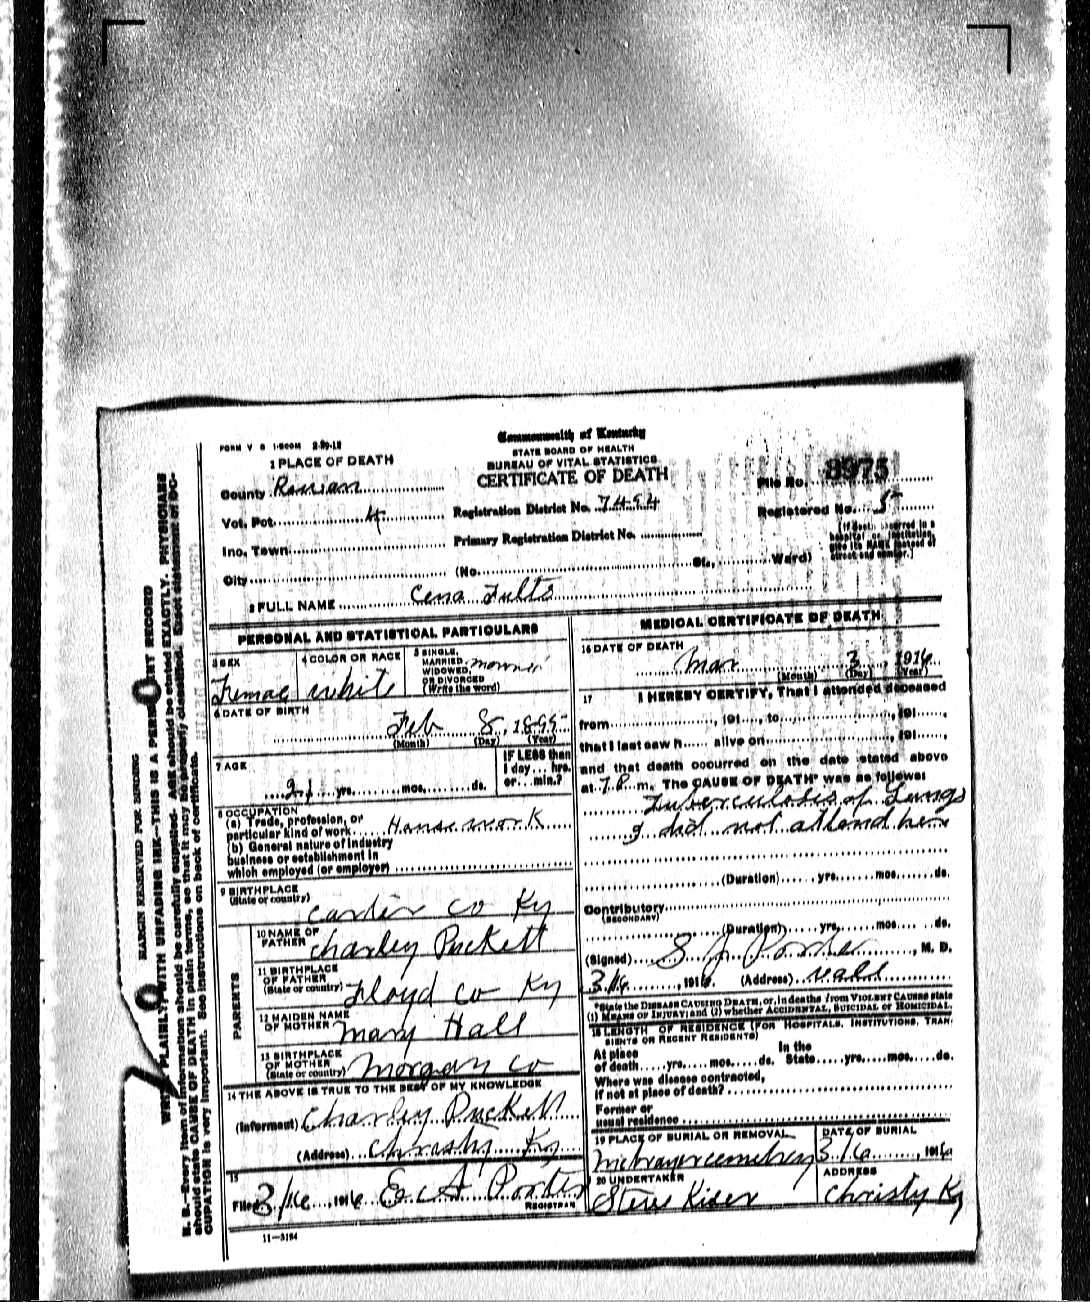 FORM V S 1-500M 2-29-12
Commonwealth of Kentucky
STATE BOARD OF HEALTH
BUREAU OF VITAL STATISTICS
CERTIFICATE OF DEATH
1 PLACE OF DEATH
County Rowan
Vot. Pct. 4
Inc. Town
City
Registration District No. 7494
Primary Registration District No.
(No. St., Ward)
File No. 8975
Registered No. 5
[If death occurred in a
hospital or institution,
give its NAME instead of
street and number.]
2 FULL NAME Cena Fults
PERSONAL AND STATISTICAL PARTICULARS
3 SEX
Femae
4 COLOR OR RACE
white
5 SINGLE,
MARRIED,
WIDOWED,
OR DIVORCED
(Write the word)
6 DATE OF BIRTH
Feb 8, 1895
(Month) (Day) (Year)
7 AGE
21 yrs. mos. ds.
IF LESS than
1 day... hrs.
or... min.?
8 OCCUPATION
(a) Trade, profession, or
particular kind of work House work
(b) General nature of industry
business or establishment in
which employed (or employer)
9 BIRTHPLACE
(State or country)
Carter co Ky
PARENTS
10 NAME OF
FATHER
Charley Puckett
11 BIRTHPLACE
OF FATHER
(State or country) Floyd co Ky
12 MAIDEN NAME
OF MOTHER
Mary Hall
13 BIRTHPLACE
OF MOTHER
(State or country) Morgan co
14 THE ABOVE IS TRUE TO THE BEST OF MY KNOWLEDGE
(Informant) Charley Puckett
(Address) Christy Ky
15
Filed 3/16, 1916 E A Porter
REGISTRAR
11—3184
MEDICAL CERTIFICATE OF DEATH
16 DATE OF DEATH
Mar 3, 1916
(Month) (Day) (Year)
17 I HEREBY CERTIFY, That I attended deceased
from, 191..., to, 191...,
that I last saw h alive on, 191...,
and that death occurred on the date stated above
at 7 P. m. The CAUSE OF DEATH* was as follows:
Tuberculosis of Lungs
I did not attend her
(Duration) yrs. mos. ds.
Contributory
(SECONDARY)
(Duration) yrs. mos. ds.
(Signed) S J Porter, M. D.
3/16, 1916. (Address)
*State the DISEASE CAUSING DEATH, or, in deaths from VIOLENT CAUSES state
(1) MEANS OF INJURY; and (2) whether ACCIDENTAL, SUICIDAL or HOMICIDAL.
18 LENGTH OF RESIDENCE (FOR HOSPITALS, INSTITUTIONS, TRAN-
SIENTS OR RECENT RESIDENTS)
At place
of death yrs. mos. ds.
In the
State yrs. mos. ds.
Where was disease contracted,
if not at place of death?
Former or
usual residence
19 PLACE OF BURIAL OR REMOVAL
cemetery
DATE OF BURIAL
3/6, 1916
20 UNDERTAKER
Steve Kiser
ADDRESS
Christy Ky
MARGIN RESERVED FOR BINDING
WRITE PLAINLY, WITH UNFADING INK—THIS IS A PERMANENT RECORD
N. B.—Every item of information should be carefully supplied. AGE should be stated EXACTLY. PHYSICIANS
should state CAUSE OF DEATH in plain terms, so that it may be properly classified. Exact statement of OC-
CUPATION is very important. See instructions on back of certificate.